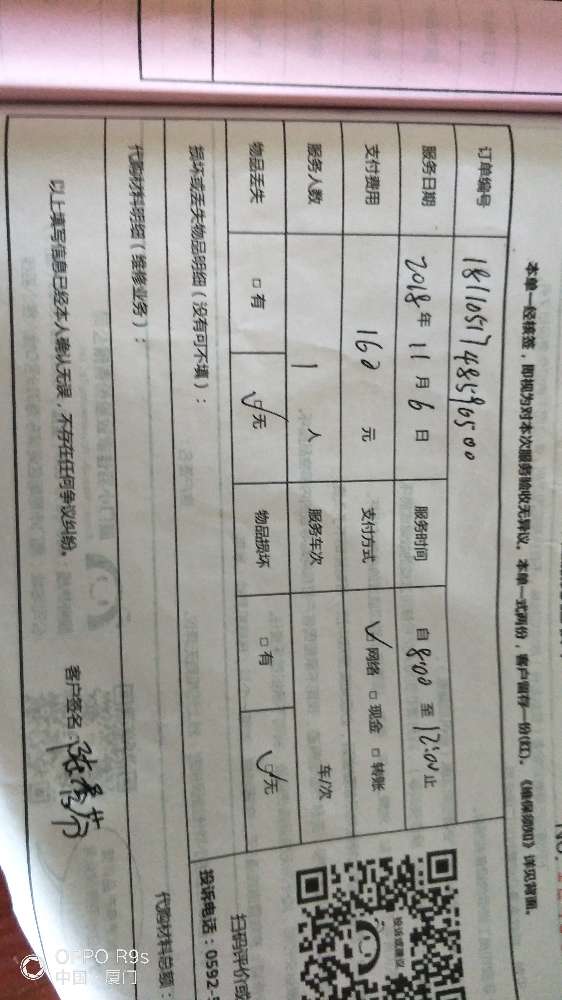 本单一经核签，即视为对本次服务验收无异议。本单一式两份，客户留存一份(红)。《维保须知》详见背面。
订单编号 1811051748590500
服务日期 2018年 11月 6日 服务时间 自 8:00 至 12:00 止
支付费用 160 元 支付方式 ☑网络 □现金 □转账
服务人数 1 人 服务车次 车/次
物品丢失 □有 ☑无 物品损坏 □有 ☑无
损坏或丢失物品明细（没有可不填）：
代购材料明细（维修业务）：
代购材料总额：
以上填写信息已经本人确认无误，不存在任何争议纠纷。
客户签名：
投诉或建议
扫码评价或
投诉电话：0592-
OPPO R9s
中国·厦门